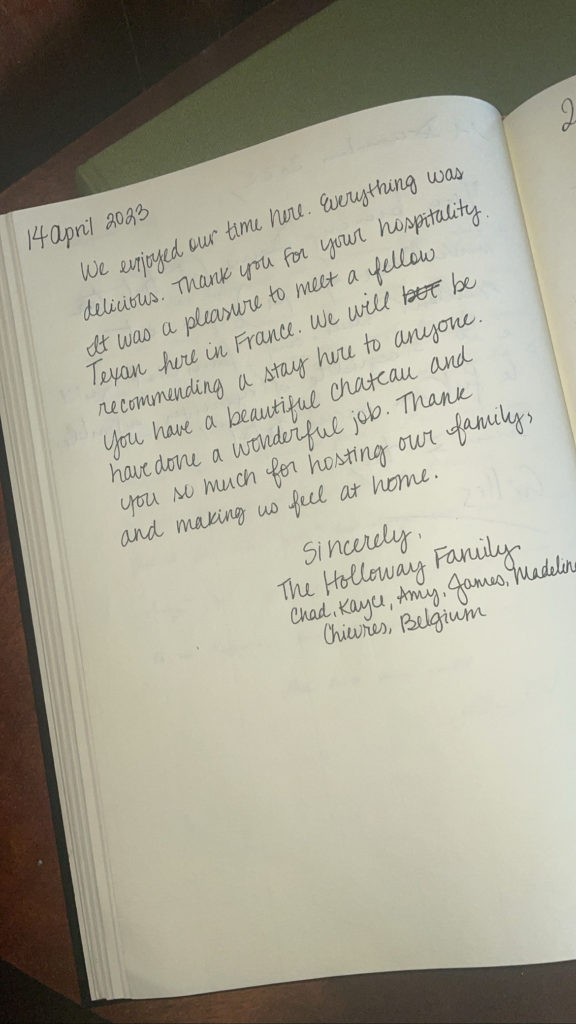 14 April 2023
We enjoyed our time here. Everything was
delicious. Thank you for your hospitality.
It was a pleasure to meet a fellow
Texan here in France. We will be
recommending a stay here to anyone.
You have a beautiful chateau and
have done a wonderful job. Thank
you so much for hosting our family,
and making us feel at home.
Sincerely,
The Holloway Family
Chad, Kayce, Amy, James, Madeline
Chievres, Belgium
2